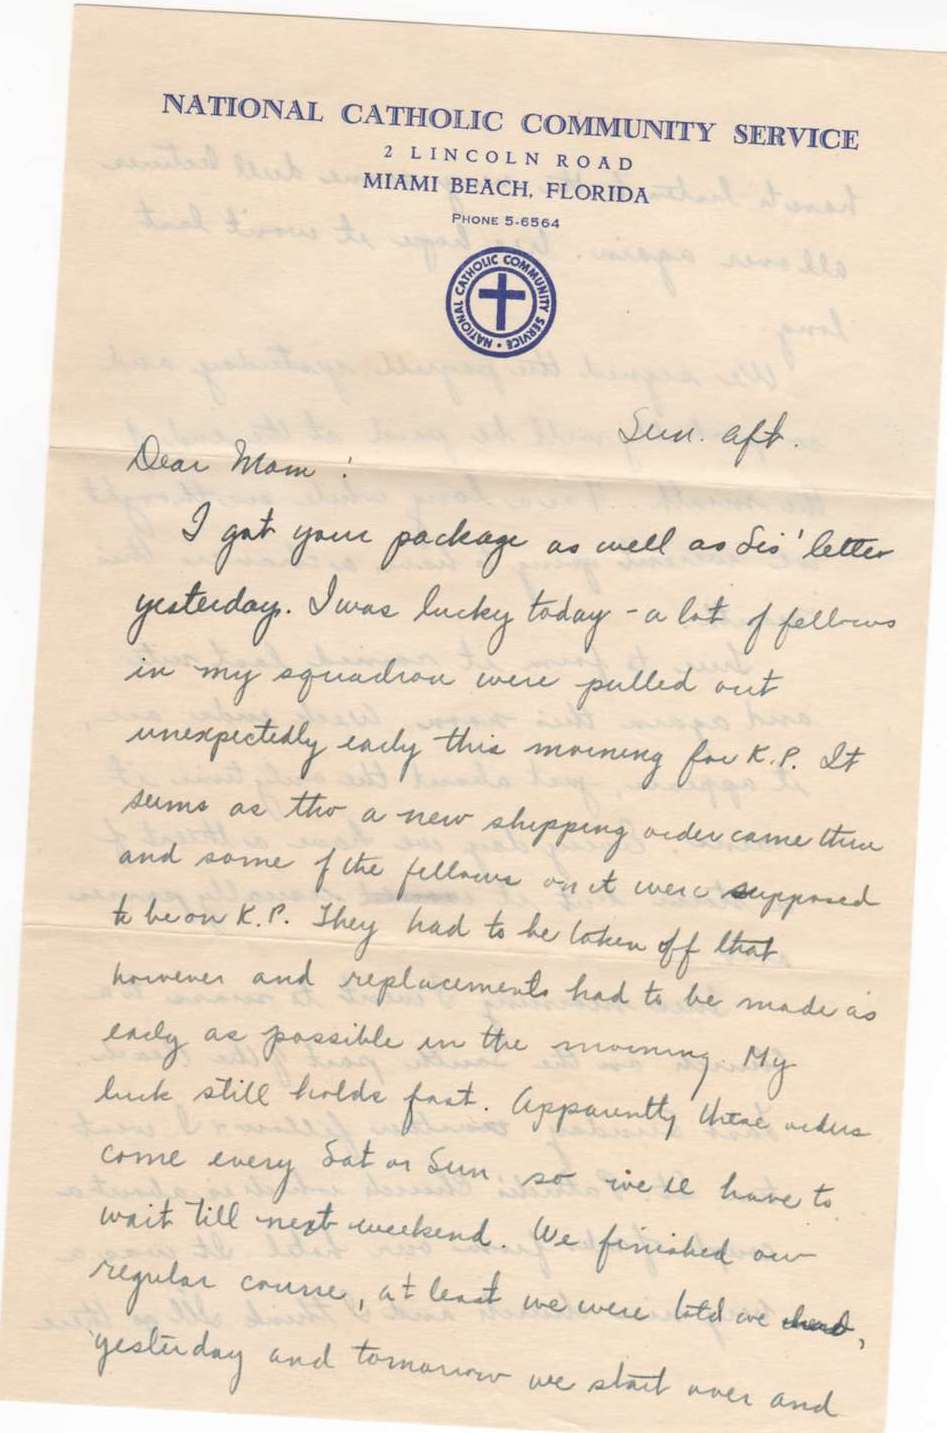 NATIONAL CATHOLIC COMMUNITY SERVICE
2 LINCOLN ROAD
MIAMI BEACH, FLORIDA
PHONE 5-6564
NATIONAL CATHOLIC COMMUNITY SERVICE
Sun. aft.
Dear Mom:
I got your package as well as Sis' letter
yesterday. I was lucky today - a lot of fellows
in my squadron were pulled out
unexpectedly early this morning for K.P. It
seems as tho a new shipping order came thru
and some of the fellows on it were supposed
to be on K.P. They had to be taken off that
however and replacements had to be made as
early as possible in the morning. My
luck still holds fast. Apparently these orders
come every Sat or Sun so we'll have to
wait till next weekend. We finished our
regular course, at least we were told we had,
yesterday and tomorrow we start over and